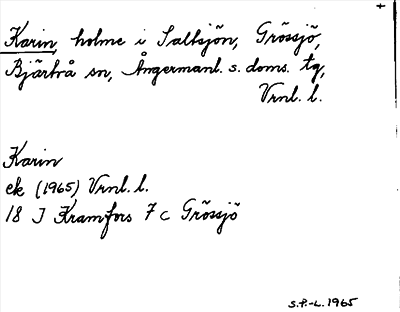 Karin, holme i Saltsjön, Grössjö,
Bjärtrå sn, Ångermanl. s. doms. tg,
Vrnl. l.
Karin
ek (1965) Vrnl. l.
18 J Kramfors 7 c Grössjö
S.P.-L. 1965